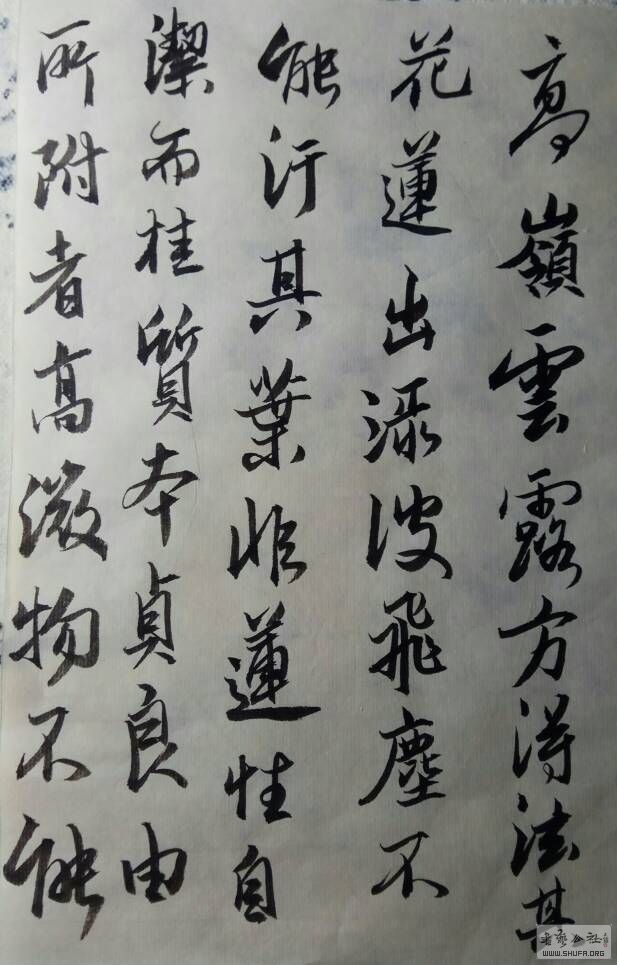 高嶺雲露方得泫其
花蓮出淥波飛塵不
能汙其葉非蓮性自
潔而桂質本貞良由
所附者高微物不能
书艺公社
WWW.SHUFA.ORG